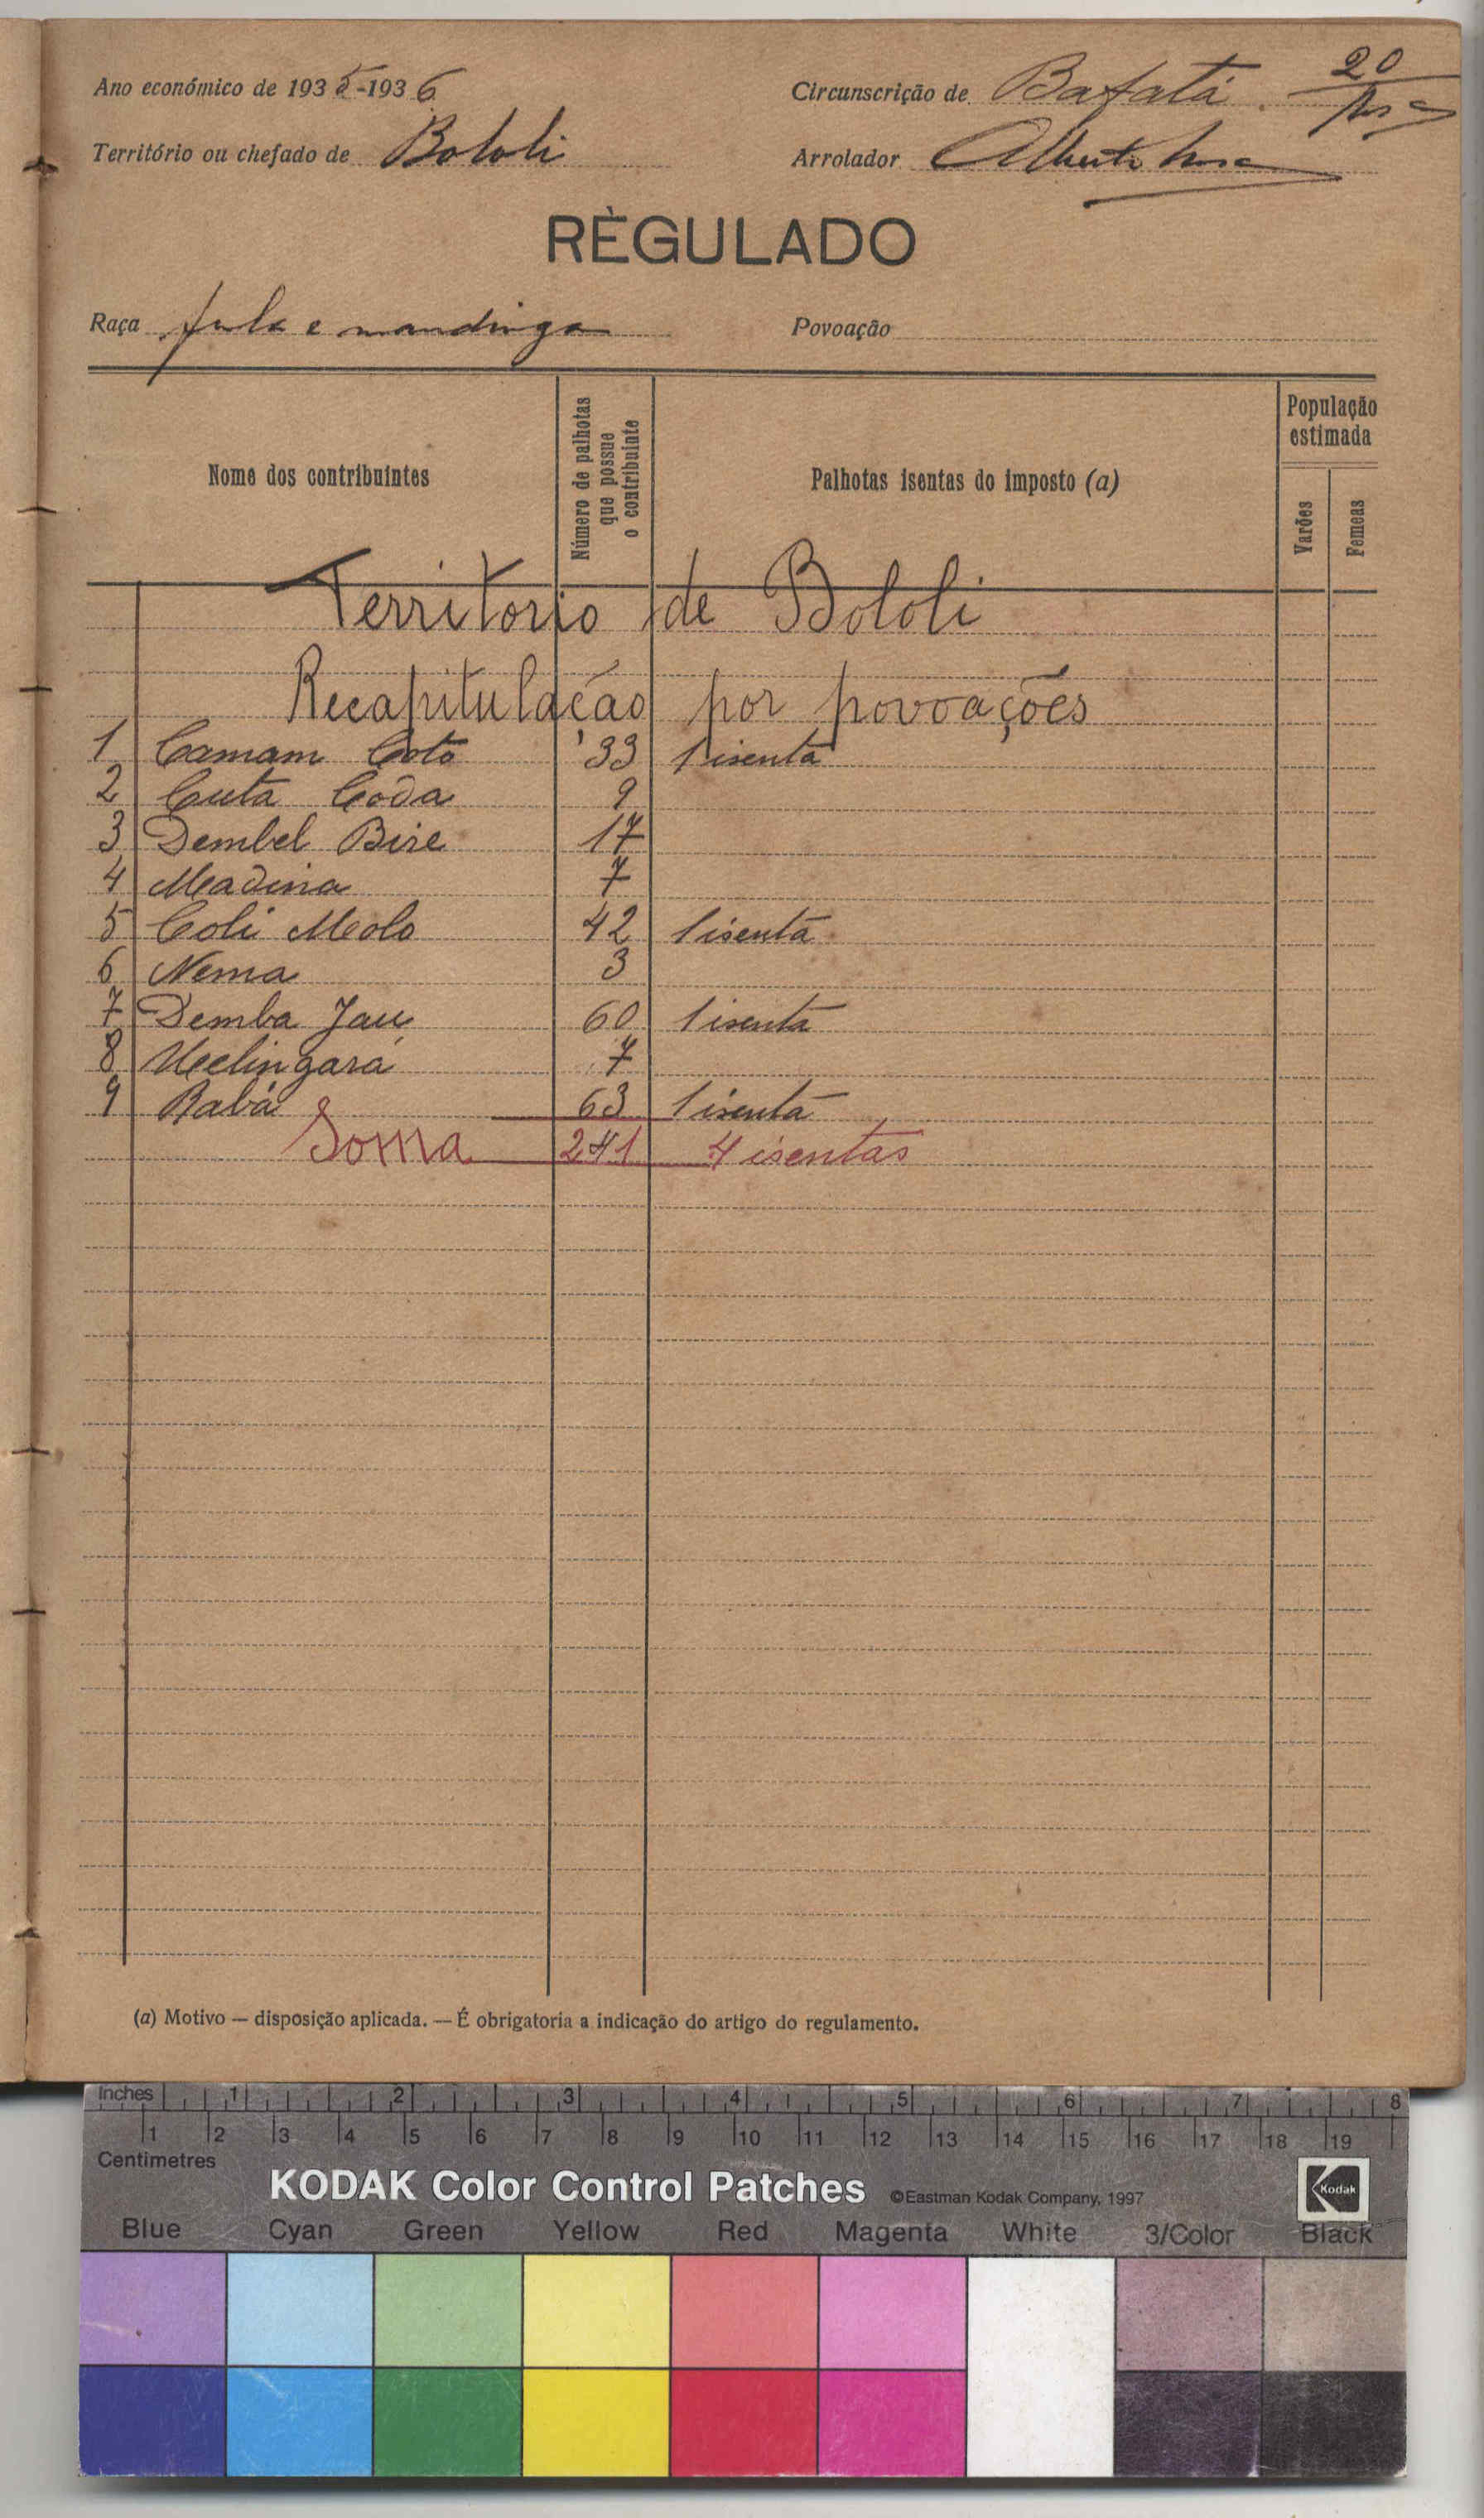 Ano económico de 1935-1936
Circunscrição de Bafatá 20
Território ou chefado de Bololi
Arrolador Alberto
RÈGULADO
Raça fula e mandinga
Povoação
Nome dos contribuintes
Número de palhotas que possue o contribuinte
Palhotas isentas do imposto (a)
População estimada
Varões
Femeas
Territorio de Bololi
Recapitulação por povoações
1 Camam Coto 33 1 isenta
2 Cuta Coda 9
3 Dembel Bire 17
4 Madina 7
5 Coli Molo 42 1 isenta
6 Nema 3
7 Demba Jau 60 1 isenta
8 Uelingará 7
9 Babá 63 1 isenta
Soma 241 4 isentas
(a) Motivo — disposição aplicada. — É obrigatoria a indicação do artigo do regulamento.
Inches 1 2 3 4 5 6 7 8
1 2 3 4 5 6 7 8 9 10 11 12 13 14 15 16 17 18 19
Centimetres
KODAK Color Control Patches ©Eastman Kodak Company, 1997 Kodak
Blue Cyan Green Yellow Red Magenta White 3/Color Black